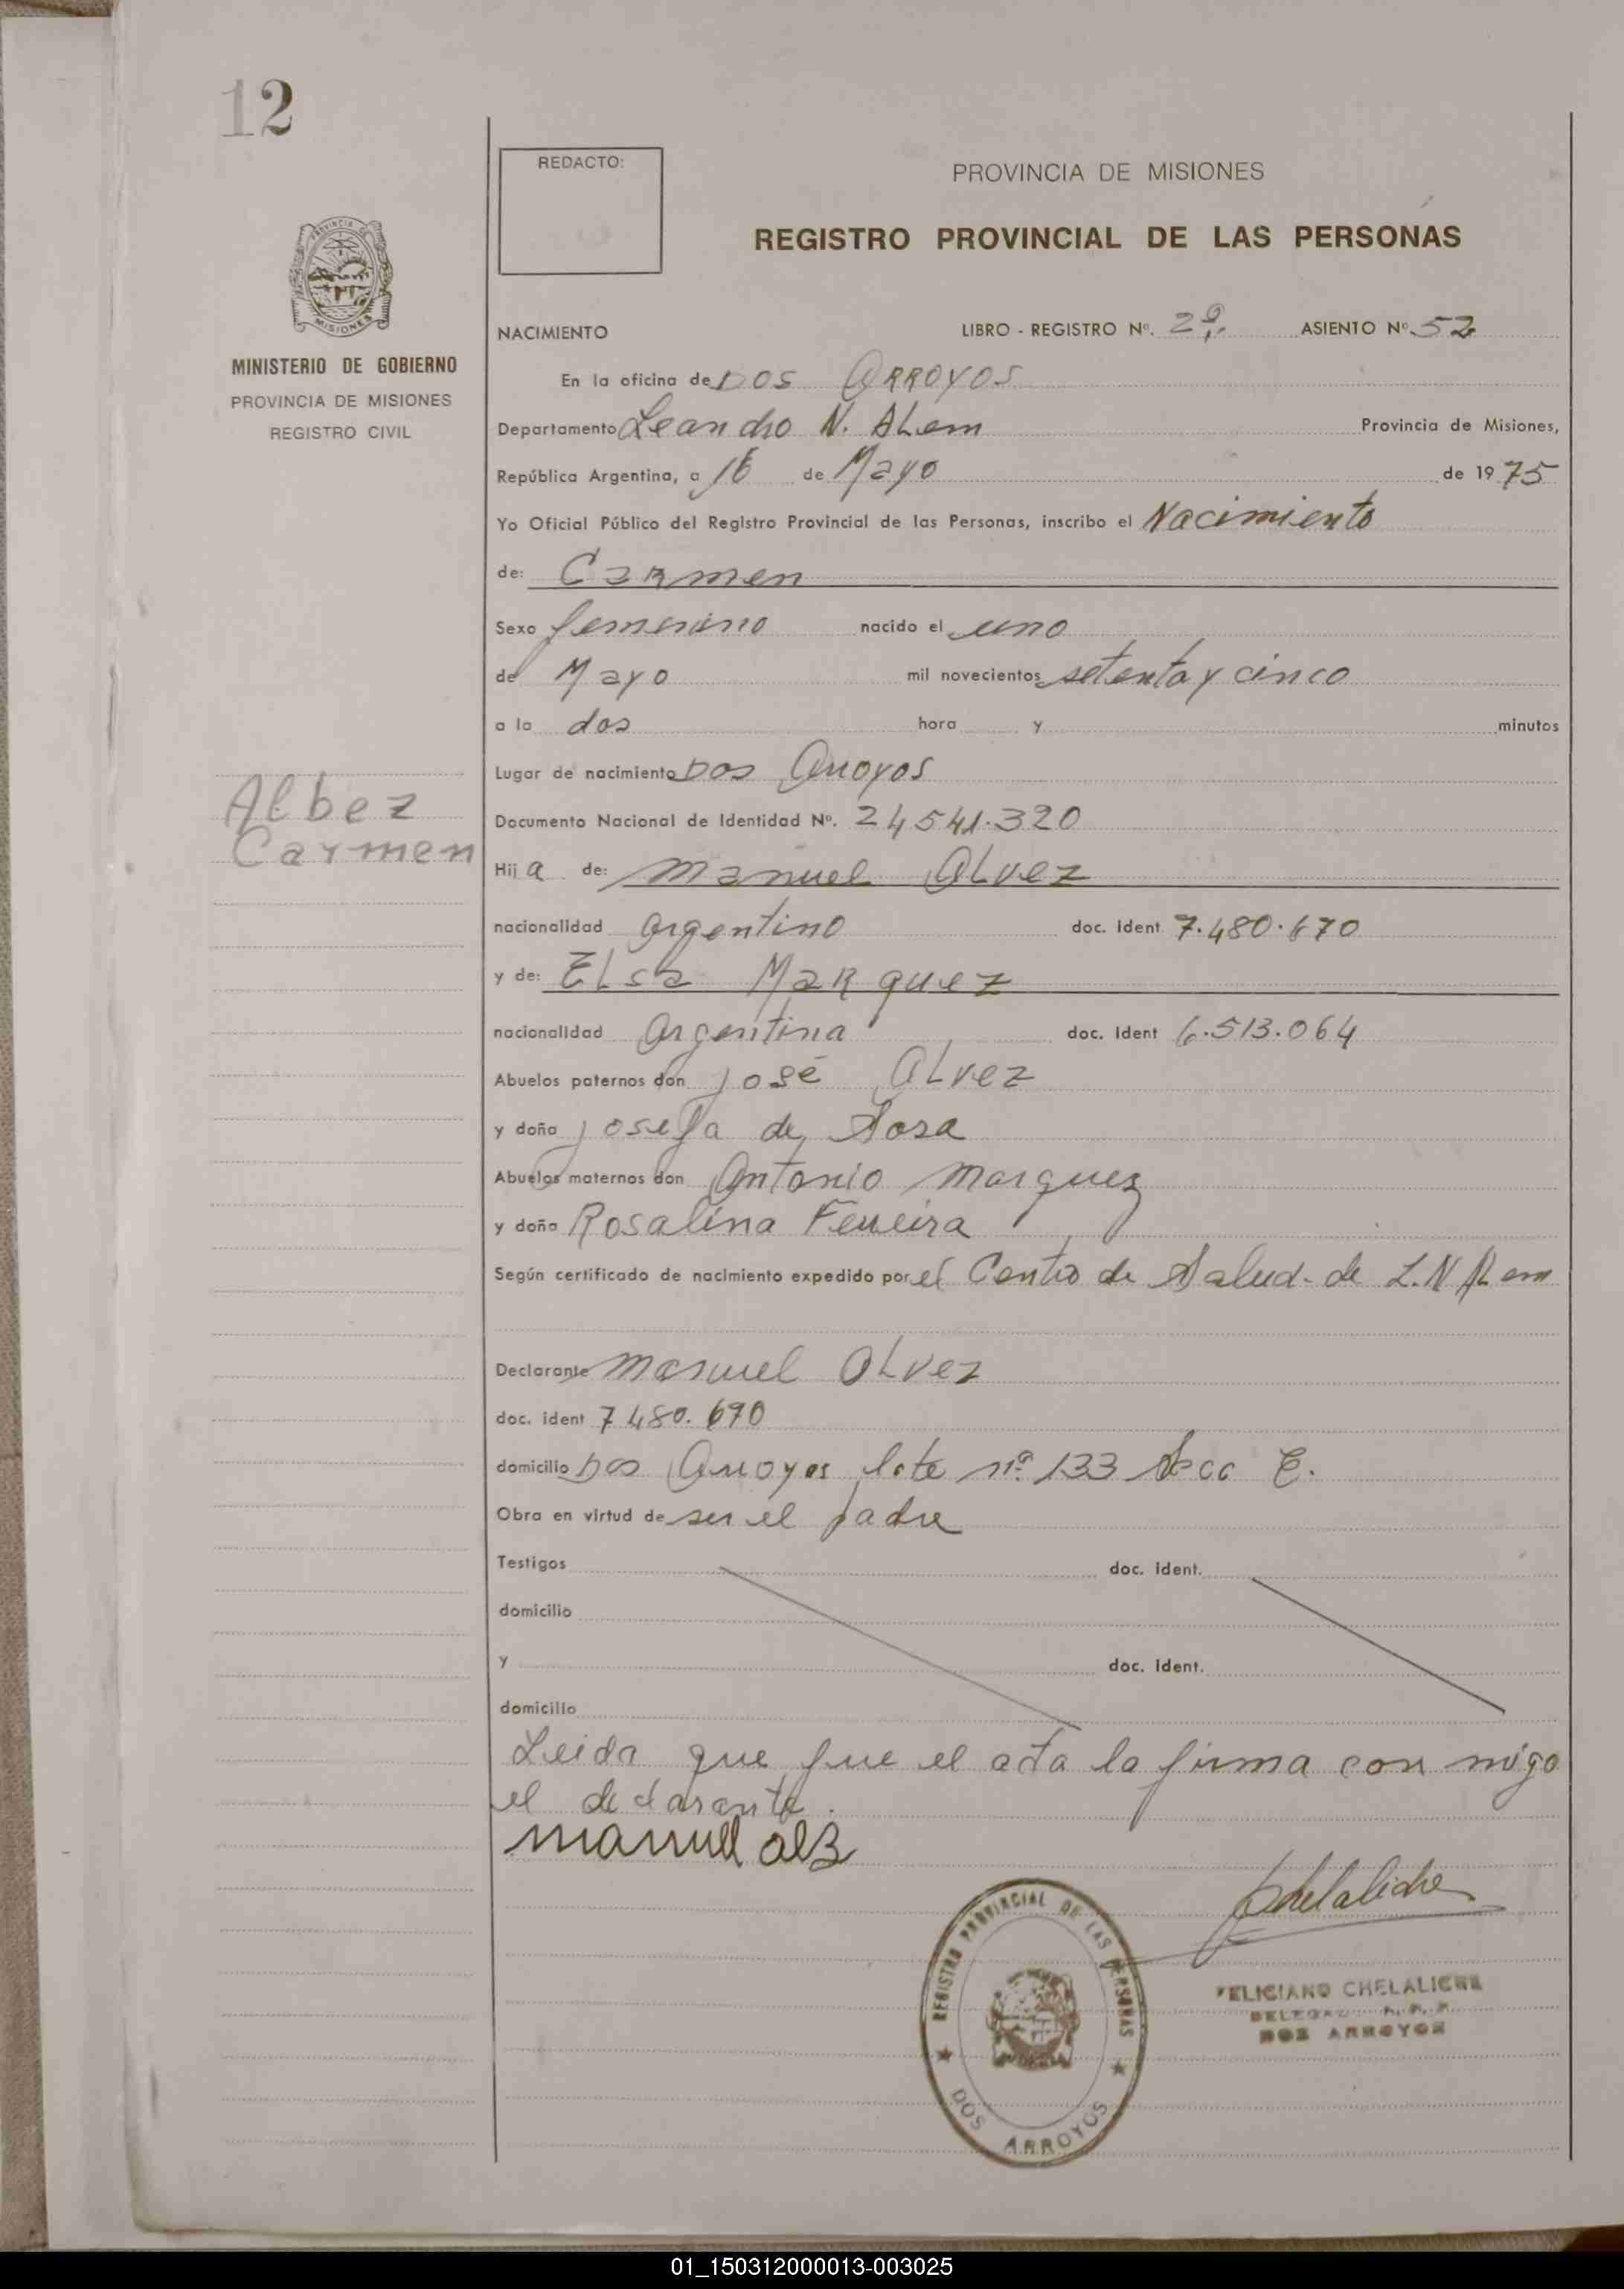 12
REDACTO:
PROVINCIA DE MISIONES
REGISTRO PROVINCIAL DE LAS PERSONAS
PROVINCIA DE
MISIONES
MINISTERIO DE GOBIERNO
PROVINCIA DE MISIONES
REGISTRO CIVIL
NACIMIENTO LIBRO - REGISTRO Nº. 2º. ASIENTO Nº 52
En la oficina de DOS ARROYOS
Departamento Leandro N. ALem Provincia de Misiones,
República Argentina, a 16 de Mayo de 1975
Yo Oficial Público del Registro Provincial de las Personas, inscribo el Nacimiento
de: Carmen
Sexo femenino nacido el uno
de Mayo mil novecientos setenta y cinco
a la dos hora y minutos
Lugar de nacimiento Dos Arroyos
Albez
Carmen
Documento Nacional de Identidad Nº. 24541.320
Hija de: Manuel ALvez
nacionalidad argentino doc. ident 7.480.670
y de: ELsa Marquez
nacionalidad argentina doc. ident 6.513.064
Abuelos paternos don José ALvez
y doña Josefa de Sosa
Abuelos maternos don Antonio Marquez
y doña Rosalina Ferreira
Según certificado de nacimiento expedido por el Centro de Salud de L. N ALem
Declarante Manuel ALvez
doc. ident 7480.670
domicilio Dos Arroyos lote nº 133 Secc E.
Obra en virtud de ser el padre
Testigos doc. ident.
domicilio
y doc. ident.
domicilio
Leida que fue el acta la firma con migo
el declarante.
manuel alB
REGISTRO PROVINCIAL DE LAS PERSONAS
DOS ARROYOS
Chelaliche
FELICIANO CHELALICHE
DELEGADO R. P. P.
DOS ARROYOS
01_150312000013-003025